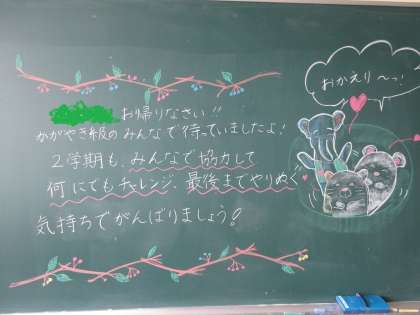 おかえり〜っ!
お帰りなさい!!
かがやき級のみんなで待っていましたよ!
2学期も、みんなで協力して
何にでもチャレンジ、最後までやりぬく
気持ちでがんばりましょう!